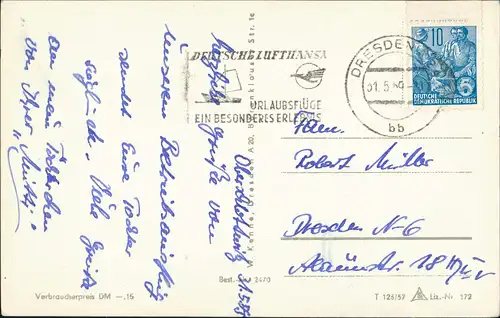 DEUTSCHE LUFTHANSA
URLAUBSFLÜGE
EIN BESONDERES ERLEBNIS
DRESDEN
31.5.
bb
10
DEUTSCHE
DEMOKRATISCHE REPUBLIK
Herzliche Grüße von
unserem Betriebsausflug
sendet Eure Tochter
Viele Grüße
von Ihrer „Mutti"
Fam.
Robert Müller
Dresden N-6
Alaunstr.
Verbraucherpreis DM —.15
Best.-Nr. 2470
T 126/57 Liz.-Nr. 172